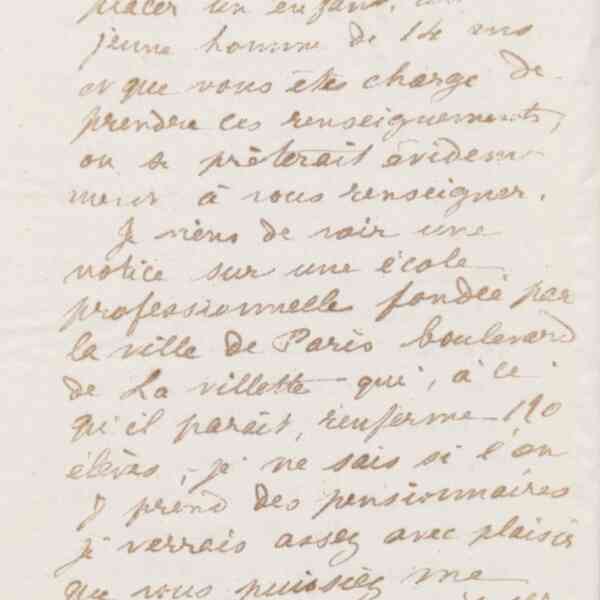 placer un enfant, un
jeune homme de 14 ans
et que vous êtes chargé de
prendre ces renseignements,
on se prêterait évidem-
ment à vous renseigner.
Je viens de voir une
notice sur une école
professionnelle fondée par
la ville de Paris boulevard
de La villette qui, à ce
qu'il parait, renferme 190
élèves, je ne sais si l'on
y prend des pensionnaires
je verrais assez avec plaisir
que vous puissiez me